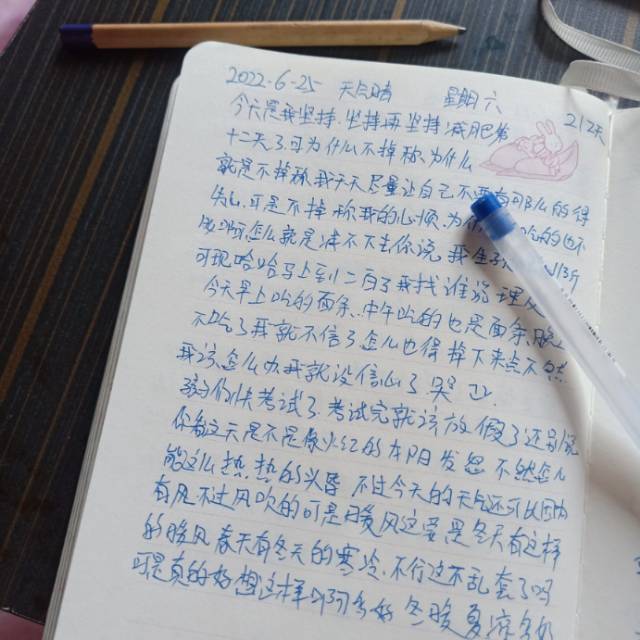 2022.6.25 天气晴 星期六
212天
今天是我坚持,坚持再坚持减肥第
十二天了可为什么不掉称,为什么
就是不掉称,我天天尽量让自己不
失心,可是不掉称我的心烦,为 吃的也不
多啊怎么就是掉不下去你说,我
可现哈哈马上到二百了我找谁说理
今天早上吃的面条,中午吃的也是面条,晚
不吃了我就不信了怎么也得掉下来点不然
我该怎么办,我就没信心了,哭
孩们快考试了,考试完就该放假了还别说
你看这天是不是像火红的太阳发怒不然怎么
能这么热,热的头昏 不过今天的天气还可以因为
有风不过风吹的可是暖风这要是冬天有这样
的暖风春天有冬天的寒冷,不行这不乱套了吗
可是真的好想这样 阿多好 冬暖夏凉多